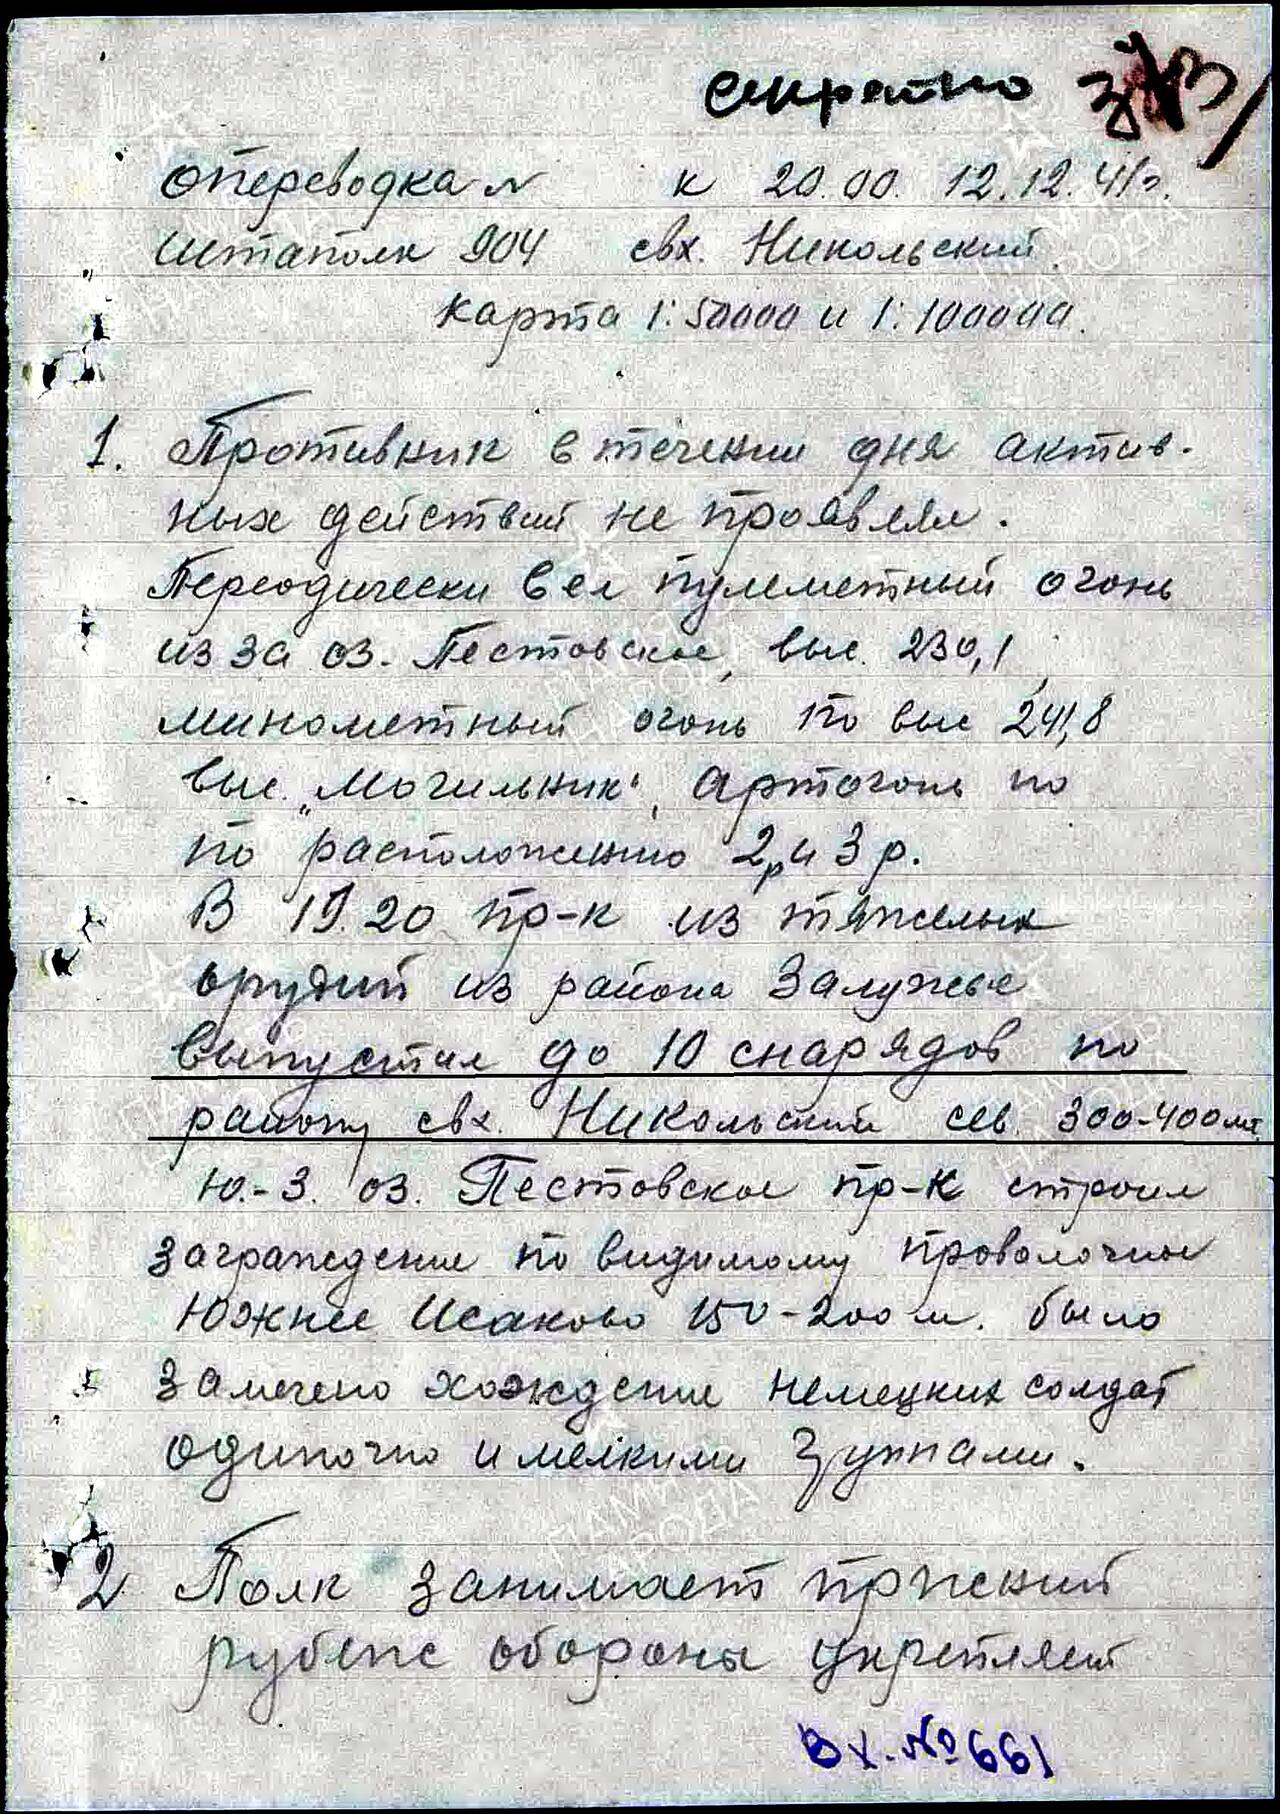 Секретно
Опересводка № к 20.00. 12.12.41г.
Штаполк 904 свх. Никольский
карта 1:50000 и 1:100000.
1. Противник в течении дня актив-
ных действий не проявлял.
Переодически вел пулеметный огонь
из за оз. Пестовское, выс. 230,1,
минометный огонь по выс 241,8
выс. "Могильник", артогонь по
по расположению 2р и 3 р.
В 19.20 пр-к из тяжелых
орудий из района Залужье
выпустил до 10 снарядов по
району свх. Никольский сев. 300-400мт.
Ю.-З. оз. Пестовское пр-к строил
заграждение по видимому проволочное
Южнее Исаково 150-200 м. было
замечено хождение немецких солдат
одиночно и мелкими группами.
2 Полк занимает прежний
рубеже обороны укрепляет
Вх. № 661
ПАМЯТЬ НАРОДА